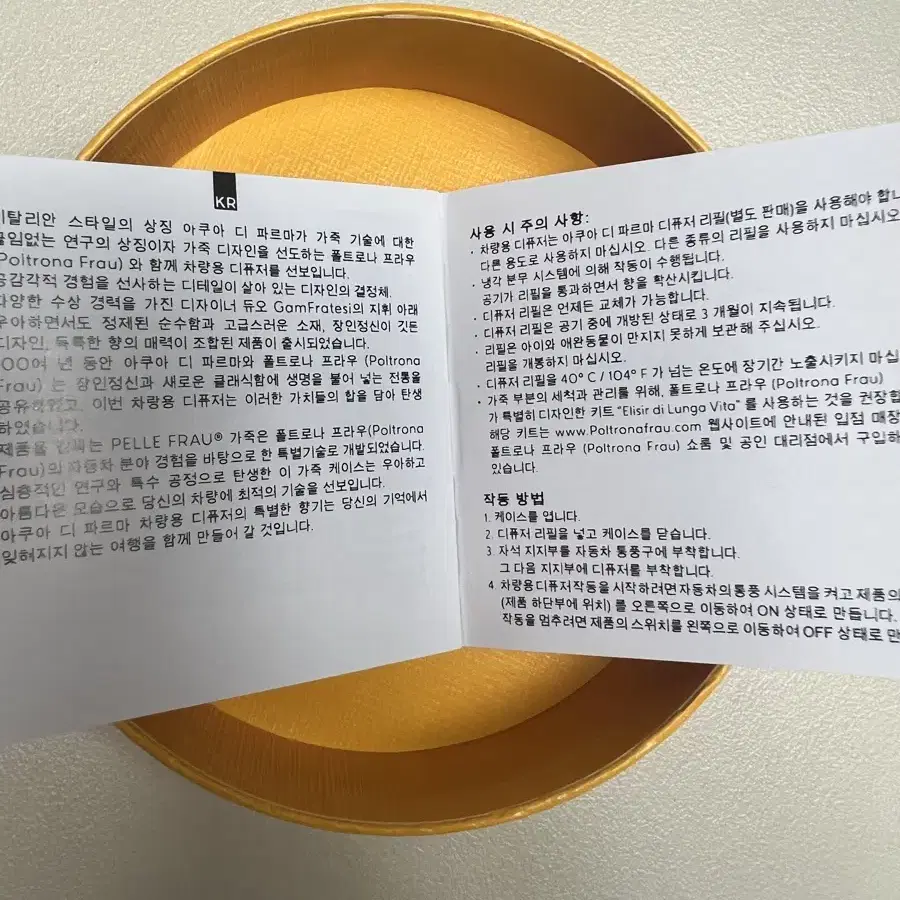 KR
이탈리안 스타일의 상징 아쿠아 디 파르마가 가죽 기술에 대한
끊임없는 연구의 상징이자 가죽 디자인을 선도하는 폴트로나 프라우
(Poltrona Frau) 와 함께 차량용 디퓨저를 선보입니다.
공감각적 경험을 선사하는 디테일이 살아 있는 디자인의 결정체.
다양한 수상 경력을 가진 디자이너 듀오 GamFratesi의 지휘 아래
우아하면서도 정제된 순수함과 고급스러운 소재, 장인정신이 깃든
디자인, 독특한 향의 매력이 조합된 제품이 출시되었습니다.
100여 년 동안 아쿠아 디 파르마와 폴트로나 프라우 (Poltrona
Frau) 는 장인정신과 새로운 클래식함에 생명을 불어 넣는 전통을
공유하였고, 이번 차량용 디퓨저는 이러한 가치들의 합을 담아 탄생
하였습니다.
제품을 감싸는 PELLE FRAU® 가죽은 폴트로나 프라우(Poltrona
Frau)의 자동차 분야 경험을 바탕으로 한 특별기술로 개발되었습니다.
심층적인 연구와 특수 공정으로 탄생한 이 가죽 케이스는 우아하고
아름다운 모습으로 당신의 차량에 최적의 기술을 선보입니다.
아쿠아 디 파르마 차량용 디퓨저의 특별한 향기는 당신의 기억에서
잊혀지지 않는 여행을 함께 만들어 갈 것입니다.
사용 시 주의 사항:
· 차량용 디퓨저는 아쿠아 디 파르마 디퓨저 리필(별도 판매)을 사용해야 합니
다른 용도로 사용하지 마십시오. 다른 종류의 리필을 사용하지 마십시오
· 냉각 분무 시스템에 의해 작동이 수행됩니다.
공기가 리필을 통과하면서 향을 확산시킵니다.
· 디퓨저 리필은 언제든 교체가 가능합니다.
· 디퓨저 리필은 공기 중에 개방된 상태로 3 개월이 지속됩니다.
· 리필은 아이와 애완동물이 만지지 못하게 보관해 주십시오.
리필을 개봉하지 마십시오.
· 디퓨저 리필을 40° C / 104° F 가 넘는 온도에 장기간 노출시키지 마십
· 가죽 부분의 세척과 관리를 위해, 폴트로나 프라우 (Poltrona Frau)
가 특별히 디자인한 키트 "Elisir di Lunga Vita" 를 사용하는 것을 권장합
해당 키트는 www.Poltronafrau.com 웹사이트에 안내된 입점 매장
폴트로나 프라우 (Poltrona Frau) 쇼룸 및 공인 대리점에서 구입하
있습니다.
작동 방법
1. 케이스를 엽니다.
2. 디퓨저 리필을 넣고 케이스를 닫습니다.
3. 자석 지지부를 자동차 통풍구에 부착합니다.
그 다음 지지부에 디퓨저를 부착합니다.
4. 차량용 디퓨저 작동을 시작하려면 자동차의 통풍 시스템을 켜고 제품의
(제품 하단부에 위치) 를 오른쪽으로 이동하여 ON 상태로 만듭니다.
작동을 멈추려면 제품의 스위치를 왼쪽으로 이동하여 OFF 상태로 만